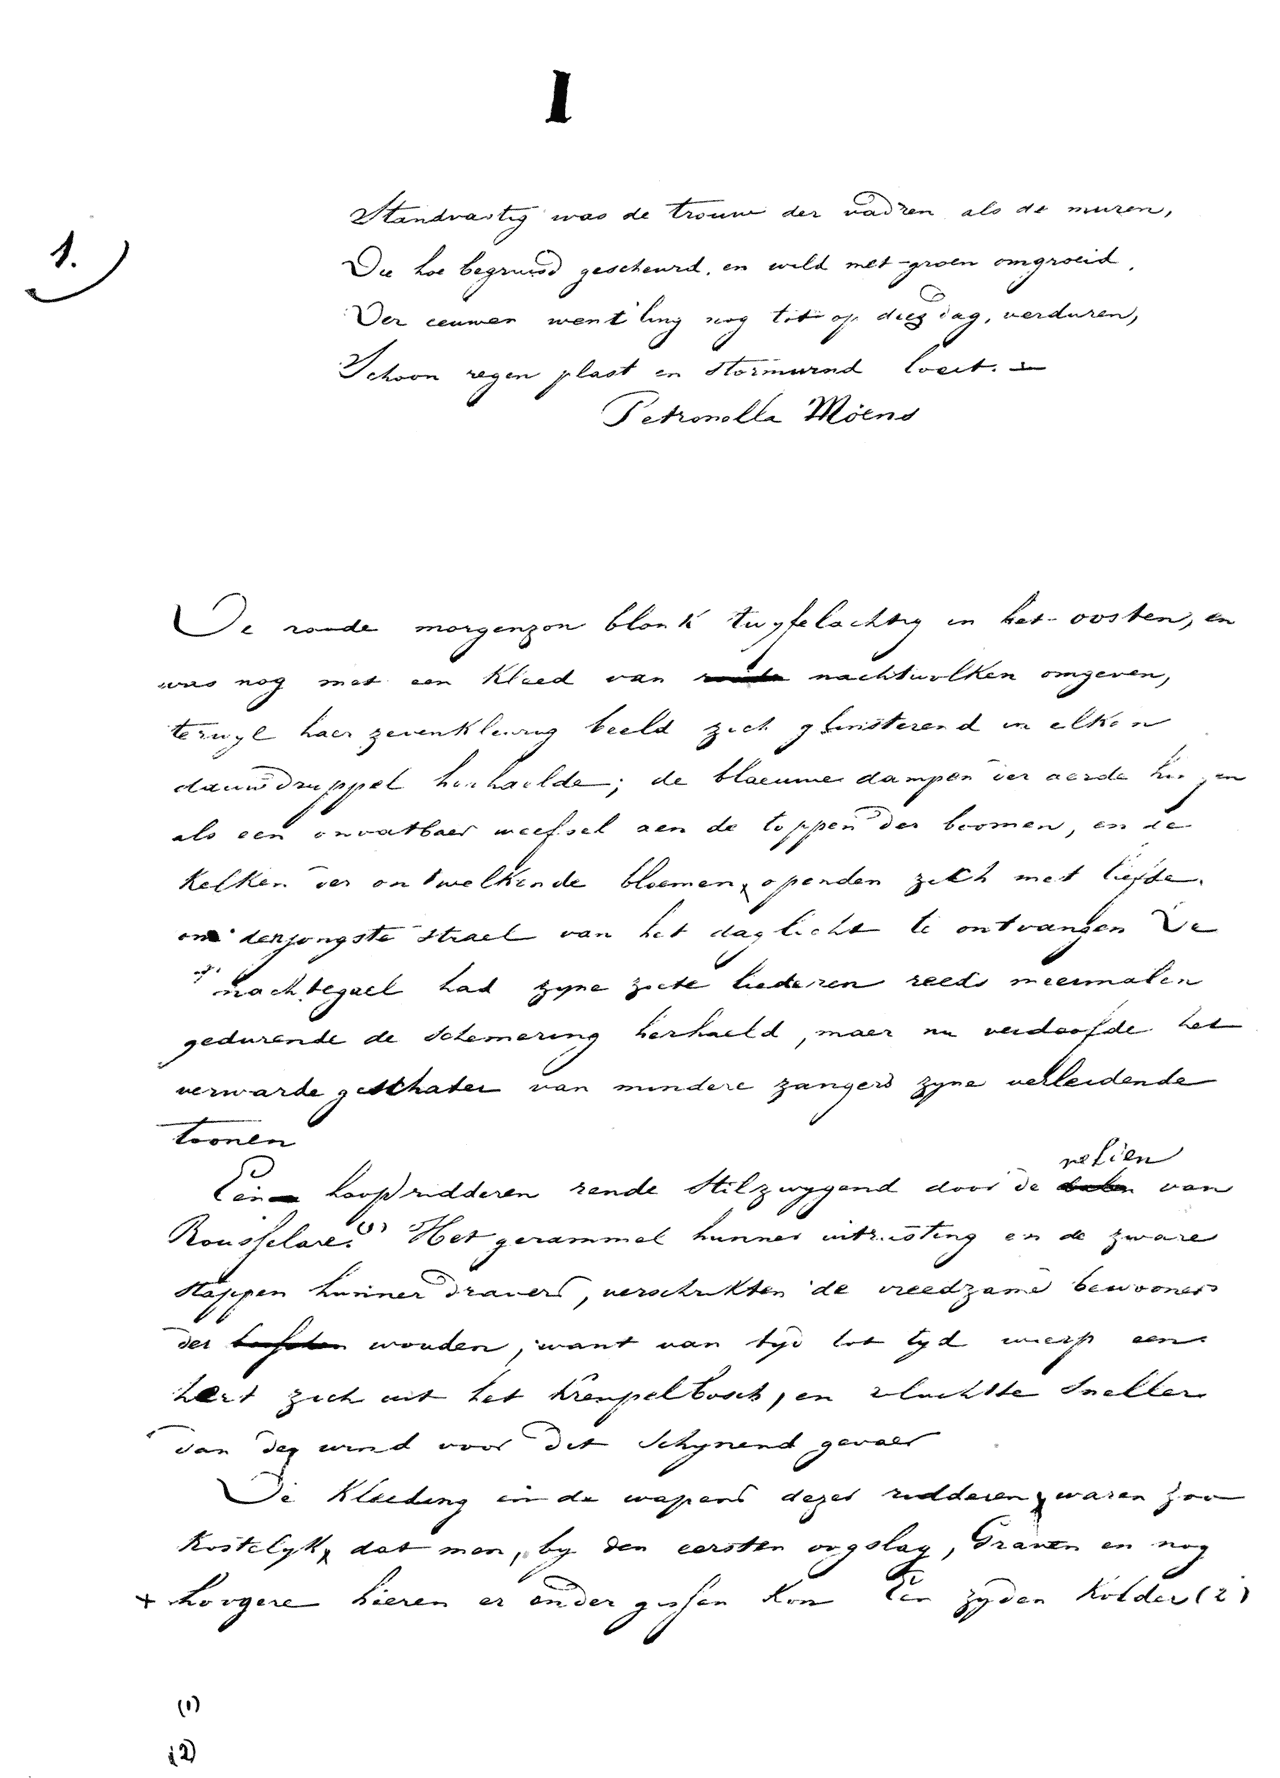 I
1.)
Standvastig was de trouw der vadren als de muren,
Die hoe begruisd gescheurd, en wild met groen omgroeid,
Der eeuwen wenteling nog tot op dezen dag, verduren,
Schoon regen plast en stormwind loeit. —
Petronella Möens
De roode morgenzon blonk twyfelachtig in het oosten, en
was nog met een kleed van nachtwolken omgeven,
terwyl haer zevenkleurig beeld zich glinsterend in elken
dauwdruppel herhaelde; de blaeuwe dampen der aerde hingen
als een onvatbaer weefsel aen de toppen der boomen, en de
kelken der ontwelkende bloemen openden zich met liefde
om den jongste strael van het daglicht te ontvangen De
nachtegael had zyne zoete liederen reeds meermalen
gedurende de schemering herhaeld, maer nu verdoofde het
verwarde geschater van mindere zangers zyne verleidende
toonen
velden
Een hoop ridderen rende stilzwygend door de van
Rousselare.(1) Het gerammel hunner uitrusting en de zware
stappen hunner dravers, verschrikten de vreedzame bewooners
der wouden, want van tyd tot tyd wierp een
hert zich uit het kreupelbosch, en vluchtte sneller
dan den wind voor dit schynend gevaer
De kleeding en de wapens dezer ridderen waren zoo
kostelyk, dat men, by den eersten oogslag, Graven en nog
+ hoogere heeren er onder gissen kon Een zyden kolder (2)
(1)
(2)